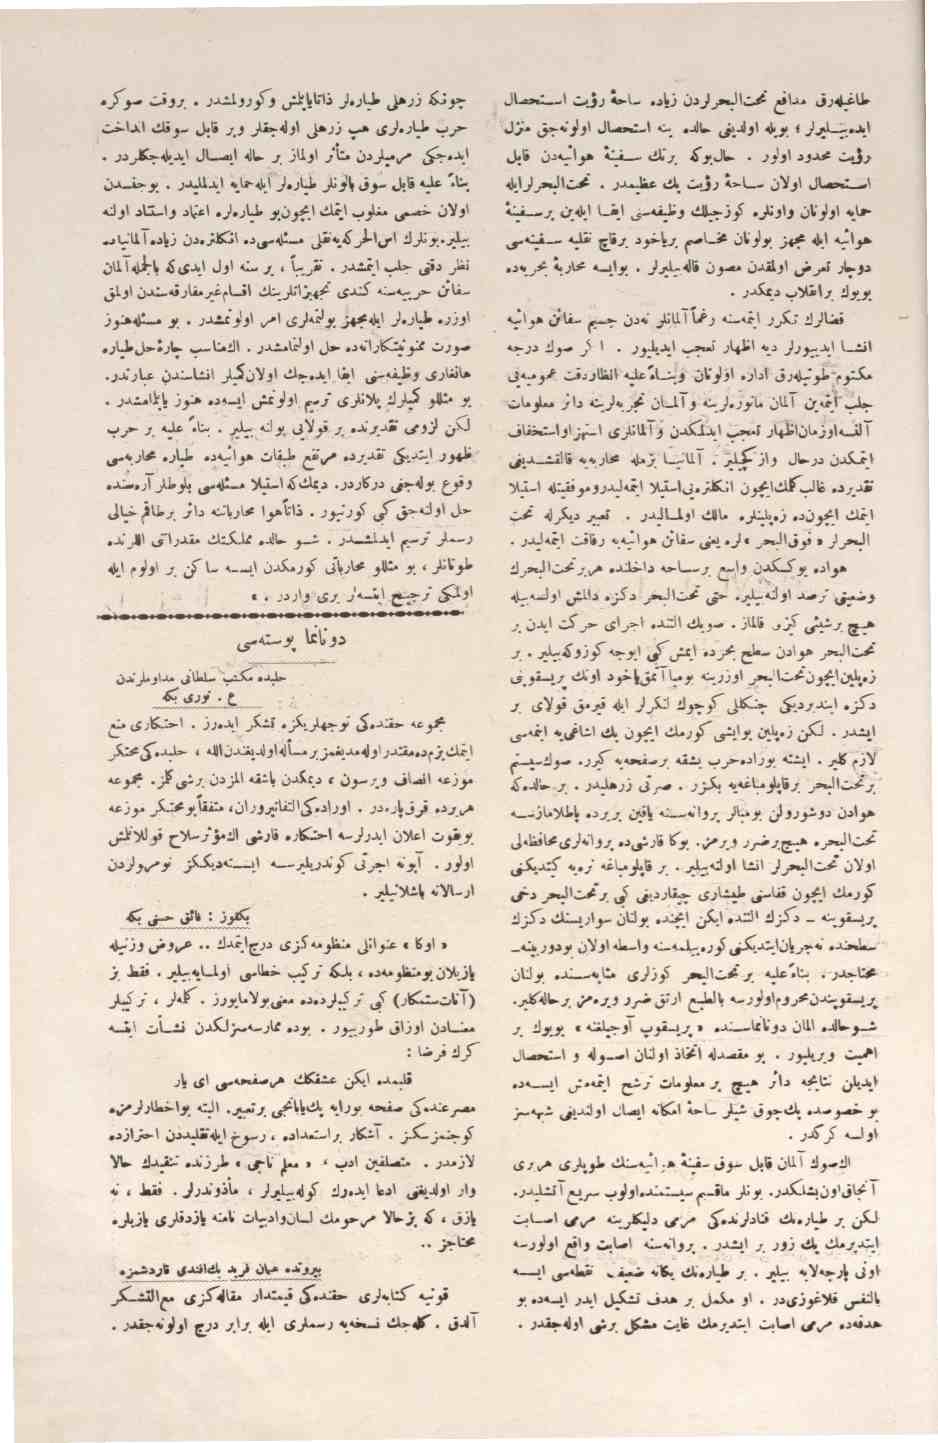 طاغیله‌رق مدافع تحت‌البحرلردن زیاده ساحهٔ رؤیت استحصال
ایده‌بیلیرلر ؛ بویله اولدیغی حالده ینه استحصال اولونه‌جق منزل
رؤیت محدود اولور . حال‌بوکه برتك سفینهٔ هوائیه‌دن قابل
استحصال اولان ساحهٔ رؤیت پك عظیمدر . تحت‌البحرلرایله
حمایه اولونان واونلره کوزجیلك وظیفه‌سنی ایفا ایله‌ین برسفینهٔ
هوائیه ایله مجهز بولونان مخاصم برياخود برقاچ نقلیه سفینه‌سی
دوچار تعرض اولمقدن مصون قاله‌بیلیرلر . بوایسه محاربهٔ بحریه‌ده
بویوك برانقلاب دیمکدر .
قضالرك تکرر ایتمه‌سنه رغماً آلمانلر نه‌دن جسیم سفائن هوائیه
انشا ایدییورلر دیه اظهار تعجب ایدیلیور . اكر صوك درجه
مکتوم طوتیله‌رق اداره اولونان وبناءً علیه انظاردقت عمومیه‌یی
جلب ایتمه‌ین آلمان مانوره‌لرینه وآلمان تجربه‌لرینه دائر معلومات
آلنسه‌اوزمان‌اظهار تعجب ایدلمکدن وآلمانلری استهزاواستخفاف
ایتمکدن درحال وازکچیلیر . آلمانیا بزمله محاربه‌یه قالقشدیغی
تقدیرده غالب‌کلمك‌ایچون انکلتره‌یی‌استیلا ایتمه‌لیدروموفقیتله استیلا
ایتمك ایچون‌ده زه‌پلینلره مالك اولمالیدر . تعبیر دیکرله تحت
البحرلر « فوق‌البحر »لره یعنی سفائن هوائیه‌یه رفاقت ایتمه‌لیدر .
هواده یوکسکدن واسع برساحه داخلنده هربرتحت‌البحرك
وضعیتی ترصد اولنه‌بیلیر. حتی تحت‌البحر دکزه دالمش اولسه‌بیله
هیچ برشیئی کیزلی قالماز . صویك التنده اجرای حرکت ایدن بر
تحت‌البحر هوادن سطح بحرده ایمش کبی ایوجه کوزوکه‌بیلیر . بر
زه‌پلین‌ایچون‌تحت‌البحر اوزرینه بومباآتمق‌یاخود اونك پریسقوپنی
دکزه ایندیردیکی چنکللی کوچوك لنکرلر ایله قیرمق قولای بر
ایشدر . لکن زه‌پلین بوایشی کورمك ایچون پك اشاغی‌یه اینمه‌سی
لازم کلیر . ایشته بوراده‌حرب بشقه برصفحه‌یه کیرر. صوك‌سیستم
برتحت‌البحر برقاپلومباغه‌یه بکزر . صرتی زرهلیدر . بر حالده‌که
هوادن دوشورولن بومبالر پروانه‌سنه یاقین بریرده پاطلامازسه
تحت‌البحره هیچ‌برضرر ویرمز. بوکا قارشی‌ده پروانه‌لری‌محافظه‌لی
اولان تحت‌البحرلر انشا اولنه‌بیلیر . بر قاپلومباغه نره‌یه کیتدیکنی
کورمك ایچون قفاسنی طیشاری چیقاردیغی کبی برتحت‌البحر دخی
پریسقوپنه – دکزك التنده ایکن ایچنده بولنان سواریسنك دکزك
سطحنده نه‌جریان‌ایتدیکنی‌کوره‌بیلمه‌سنه واسطه اولان بودوربینه –
محتاجدر . بناءً علیه برتحت‌البحر کوزلری مثابه‌سنده بولنان
پریسقوپندن‌محروم‌اولورسه بالطبع ارتق ضرر ویره‌مز برحاله‌کلیر.
شو حالده المان دونانماسنده « پریسقوپ آوجیلغنه » بویوك بر
اهمیت ویریلیور . بو مقصدله اتخاذ اولنان اصوله و استحصال
ایدیلن نتایجه دائر هیچ بر معلومات ترشح ایتمه‌مش ایسه‌ده
بو خصوصده پك‌چوق شیلر ساحهٔ امکانه ایصال اولندیغی شبهه‌سز
اولسه کرکدر .
اك‌صوك آلمان قابل سوق سفینهٔ هوائیه‌سنك طوپلری هربری
آنجاق‌اون‌بشلکدر. بونلر ماقسیم سیستمنده‌اولوب سریع آتشلیدر.
لکن بر طیاره‌نك قنادلرنده‌کی مرمی دلیکلرینه مرمی اصابت
ایتدیرمك پك زور بر ایشدر . پروانه‌سنه اصابت واقع اولورسه
اونی پارچه‌لایه بیلیر . بر طیاره‌نك یکانه ضعیف نقطه‌سی ایسه
بالنفس قلاغوزی‌در . او مکمل بر هدف تشکیل ایدر ایسه‌ده بو
هدفه‌ده مرمی اصابت ایتدیرمك غایت مشکل برشی اوله‌جقدر .
چونکه زرهلی طیاره‌لر ذاتاًیاپلمش‌وکورولمشدر . بروقت صوکره
حرب طیاره‌لری هپ زرهلی اوله‌جقلر ویر قابل سوقك انداخت
ایده‌جکی مرمیلردن متأثر اولماز بر حاله ایصال ایدیله‌جکلردر .
بناءً علیه قابل سوق بالونلر طیاره‌لر ایله‌حمایه ایدلملیدر . بوجفسدن
اولان خصمی مغلوب ایتمك ایچون‌بو طیاره‌لره اعتماد واستناد اولنه
بیلیر.بونلرك اس‌الحرکه‌یه‌نقلی مسئله‌سی‌ده انکلتره‌دن زیاده‌آلمانیاده
نظر دقتی جلب ایتمشدر . تقریباً ، بر سنه اول ایدی‌که بالجمله‌آلمان
سفائن حربیه‌سنه کندی تجهیزاتلرینك اقسام‌غیرمفارقه‌سندن اولمق
اوزره طیاره‌لر ایله‌مجهز بولنمه‌لری امر اولونمشدر . بو مسئله‌هنوز
صورت ممنونیتکارانه‌ده حل اولنمامشدر . اك‌مناسب چارهٔ‌حل‌طیاره
هانغاری وظیفه‌سنی ایفا ایده‌جك اولان‌کمیلر انشاسندن عبارتدر.
بو مثللو کمیلرك پلانلری ترسیم اولونمش ایسه‌ده هنوز یاپلمامشدر .
لکن لزومی تقدیرنده بر قولایی بولنه بیلیر . بناءً علیه بر حرب
ظهور ایتدیکی تقدیرده مرتفع طبقات هوائیه‌ده طیاره محاربه‌سی
وقوع بوله‌جغی درکاردر. دیمك‌که استیلا مسئله‌سی بلوطلر آره‌سنده
حل اولنه‌جق کبی کورنیور . ذاتاًهوا محارباتنه دائر برطاقم خیالی
رسملر ترسیم ایدلمشدر . شو حالده مملکتك مقدراتنی اللرنده
طوتانلر ، بو مثللو محارباتی کورمکدن ایسه ساکن بر اولوم ایله
اولمکی ترجیح ایتسه‌لر یری واردر . »
دونانما پوسته‌سی
حلبده مکتب سلطانی مداوملرندن
ع . نوری بکه
مجموعه حقنده‌کی توجهلریکزه تشکر ایده‌رز . احتکاری منع
ایتمك‌بزم‌ده‌مقتدر اوله‌مدیغمز برمسأله‌اولدیغندن‌الله ، حلبده‌کی‌محتکر
موزعه انصاف ویرسون ، دیمکدن باشقه المزدن برشی‌کلمز. مجموعه
هریرده قرق‌پاره‌در . اوراده‌کی‌التفاتپروران، متفقاًبومحتکر موزعه
بویقوت اعلان ایدرلرسه احتکاره قارشی اك‌مؤثرسلاح قوللانلمش
اولور . آبونه اجرتی کوندریلیرسه ایسته‌دیککز نومرولردن
ارسالانه باشلانیلیر .
بکقوز : فائق حسنی بکه
« اوکا » عنوانلی منظومه‌کزی درج‌ایتمدك .. عروض وزنیله
یازیلان بومنظومه‌ده ، بلکه ترکیب خطاسی اولمایه‌بیلیر . فقط بز
(آفات‌ستمکار) کبی ترکیبلرده‌ده معنی‌بولامایورز . کله‌لر ، ترکیبلر
معنادن اوزاق طورییور . بوده ممارسه‌سزلکدن نشأت ایتسه
کرك فرضا :
قلبمده ایکن عشقکك هرصفحه‌سی ای یار
مصرعنده‌کی صفحه بورایه پك‌یابانجی برتعبیر. البته بواخطارلرمزه
کوجنمزسکز . آشکار براستعداده ، رسوخ ایله‌تقلیددن احترازده
لازمدر . متصلفین ادب ، « معلم ناجی » طرزنده تنقیدك حالا
وار اولدیغنی ادعا ایده‌رك کوله‌بیلیرلر ، مأذوندرلر. فقط ، نه
یازق ، که بزحالا مرحومك لسان‌وادبیات نامنه یازدقلری یازیلره
محتاجز ..
بیروتده عثمان فرید بك‌افندی قارداشمزه
قونیه کتابه‌لری حقنده‌کی قیمتدار مقاله‌کزی مع‌التشکر
آلدق . کله‌جك نسخه‌یه رسملری ایله برابر درج اولونه‌جقدر .